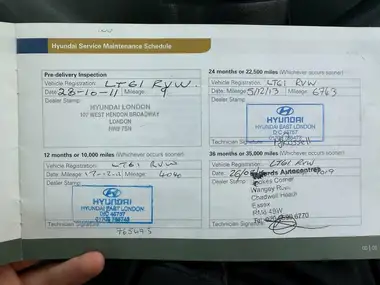 Hyundai Service Maintenance Schedule
Pre-delivery Inspection
Vehicle Registration: LT61 RVW
Date: 28-10-11 Mileage: 9
Dealer Stamp:
HYUNDAI LONDON
WEST HENDON BROADWAY
LONDON
NW9 7BN
12 months or 10,000 miles (Whichever occurs sooner)
Vehicle Registration: LT61 RVW
Mileage: 4040
Dealer Stamp:
HYUNDAI
HYUNDAI EAST LONDON
D/C 46757
Technician Signature:
24 months or 22,500 miles (Whichever occurs sooner)
Vehicle Registration: LT61 RVW
Date: 5/12/13 Mileage: 6763
Dealer Stamp:
HYUNDAI
HYUNDAI EAST LONDON
D/C 46757
Technician Signature:
36 months or 35,000 miles (Whichever occurs sooner)
Vehicle Registration: LT61 RVW
Date:
Dealer Stamp:
Autocentres
Corner
Wangey Road
Chadwell Heath
Essex
Technician Signature: